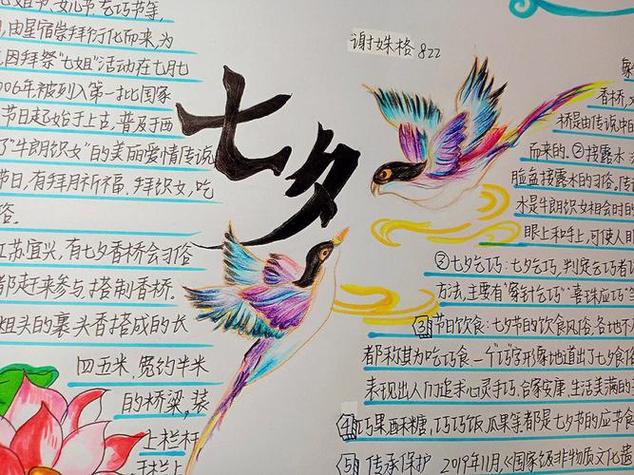 七姐节、女儿节、乞巧节等,
由星宿崇拜衍化而来,为
因拜祭“七姐”活动在七月七
006年被列入第一批国家
节日起始于上古,普及于西
了“牛朗织女”的美丽爱情传说
节日,有拜月祈福、拜织女,吃
俗。
江苏宜兴,有七夕香桥会习俗
都赶来参与,搭制香桥。
粗头的裹头香搭成的长
四五米,宽约半米
的桥梁,装
上栏杆
七夕
谢姝格 822
香桥,
桥是由传说中
而来的,②接露水:
脸盆接露水的习俗。传
水是牛朗织女相会时的
眼上和手上,可使人眼
②七夕乞巧:七夕乞巧,判定乞巧者
方法,主要有“穿针乞巧”“喜珠应巧”
③节日饮食:七夕节的饮食风俗,各地不
都称其为吃巧食,一个巧字形象地道出了七夕食俗
表现出人们追求心灵手巧、合家安康、生活美满的
④巧果酥糖,巧巧饭、瓜果等都是七夕节的应节食
⑤传承保护 2019年11月,《国家级非物质文化遗